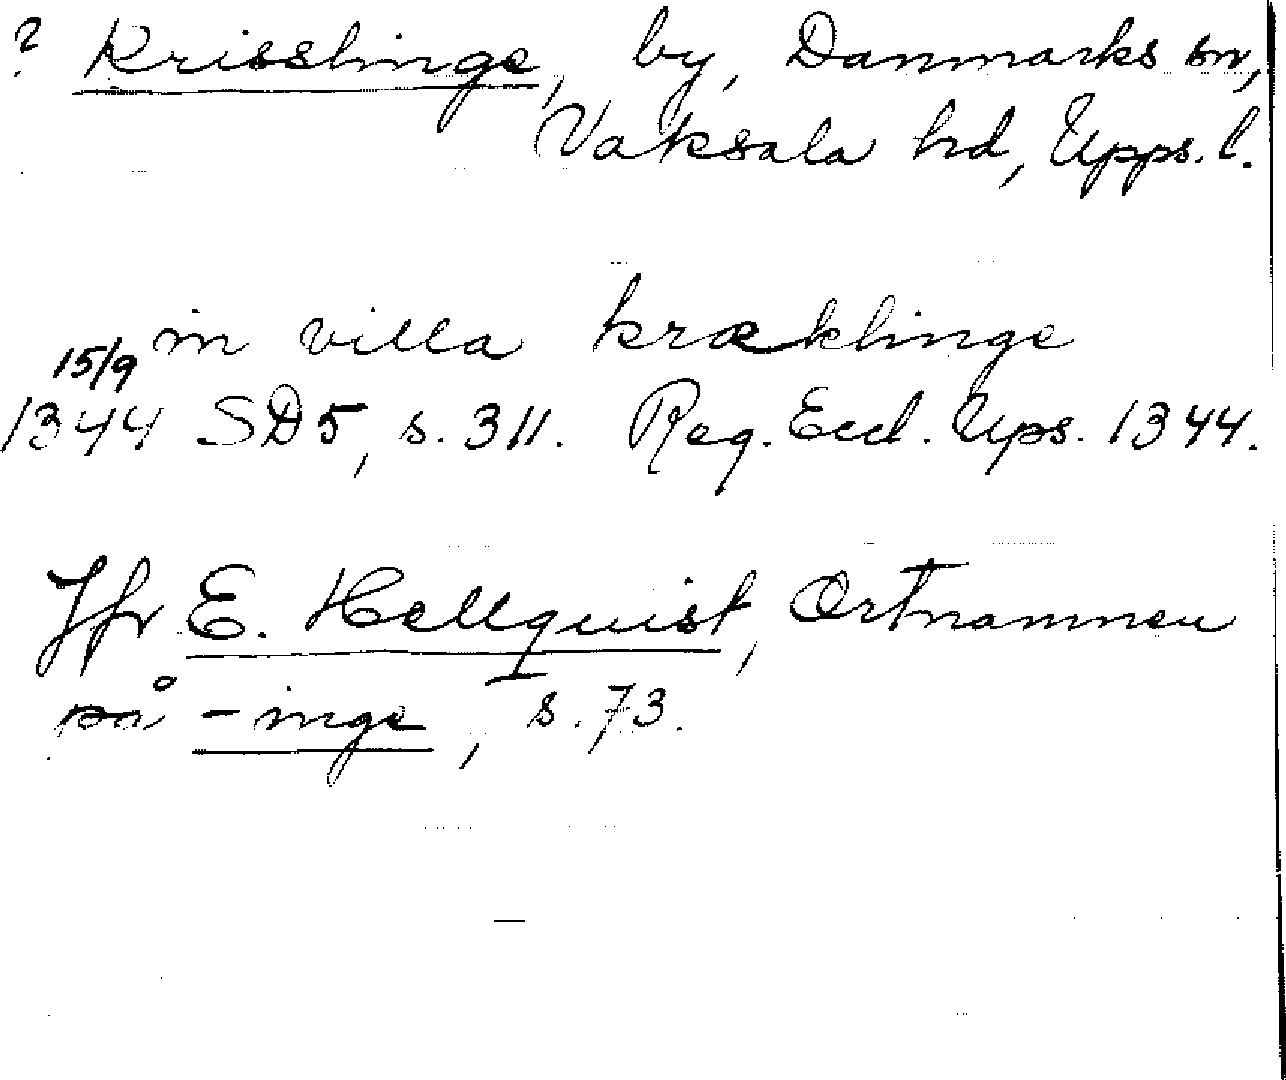 ? Krisslinge, by, Danmarks sn,
Vaksala hd, Upps. l.
in villa kræklinge
15/9
1344 SD5, s. 311. Reg. Eccl. Ups. 1344.
Jfr E. Hellquist, Ortnamnen
på -inge, s. 73.